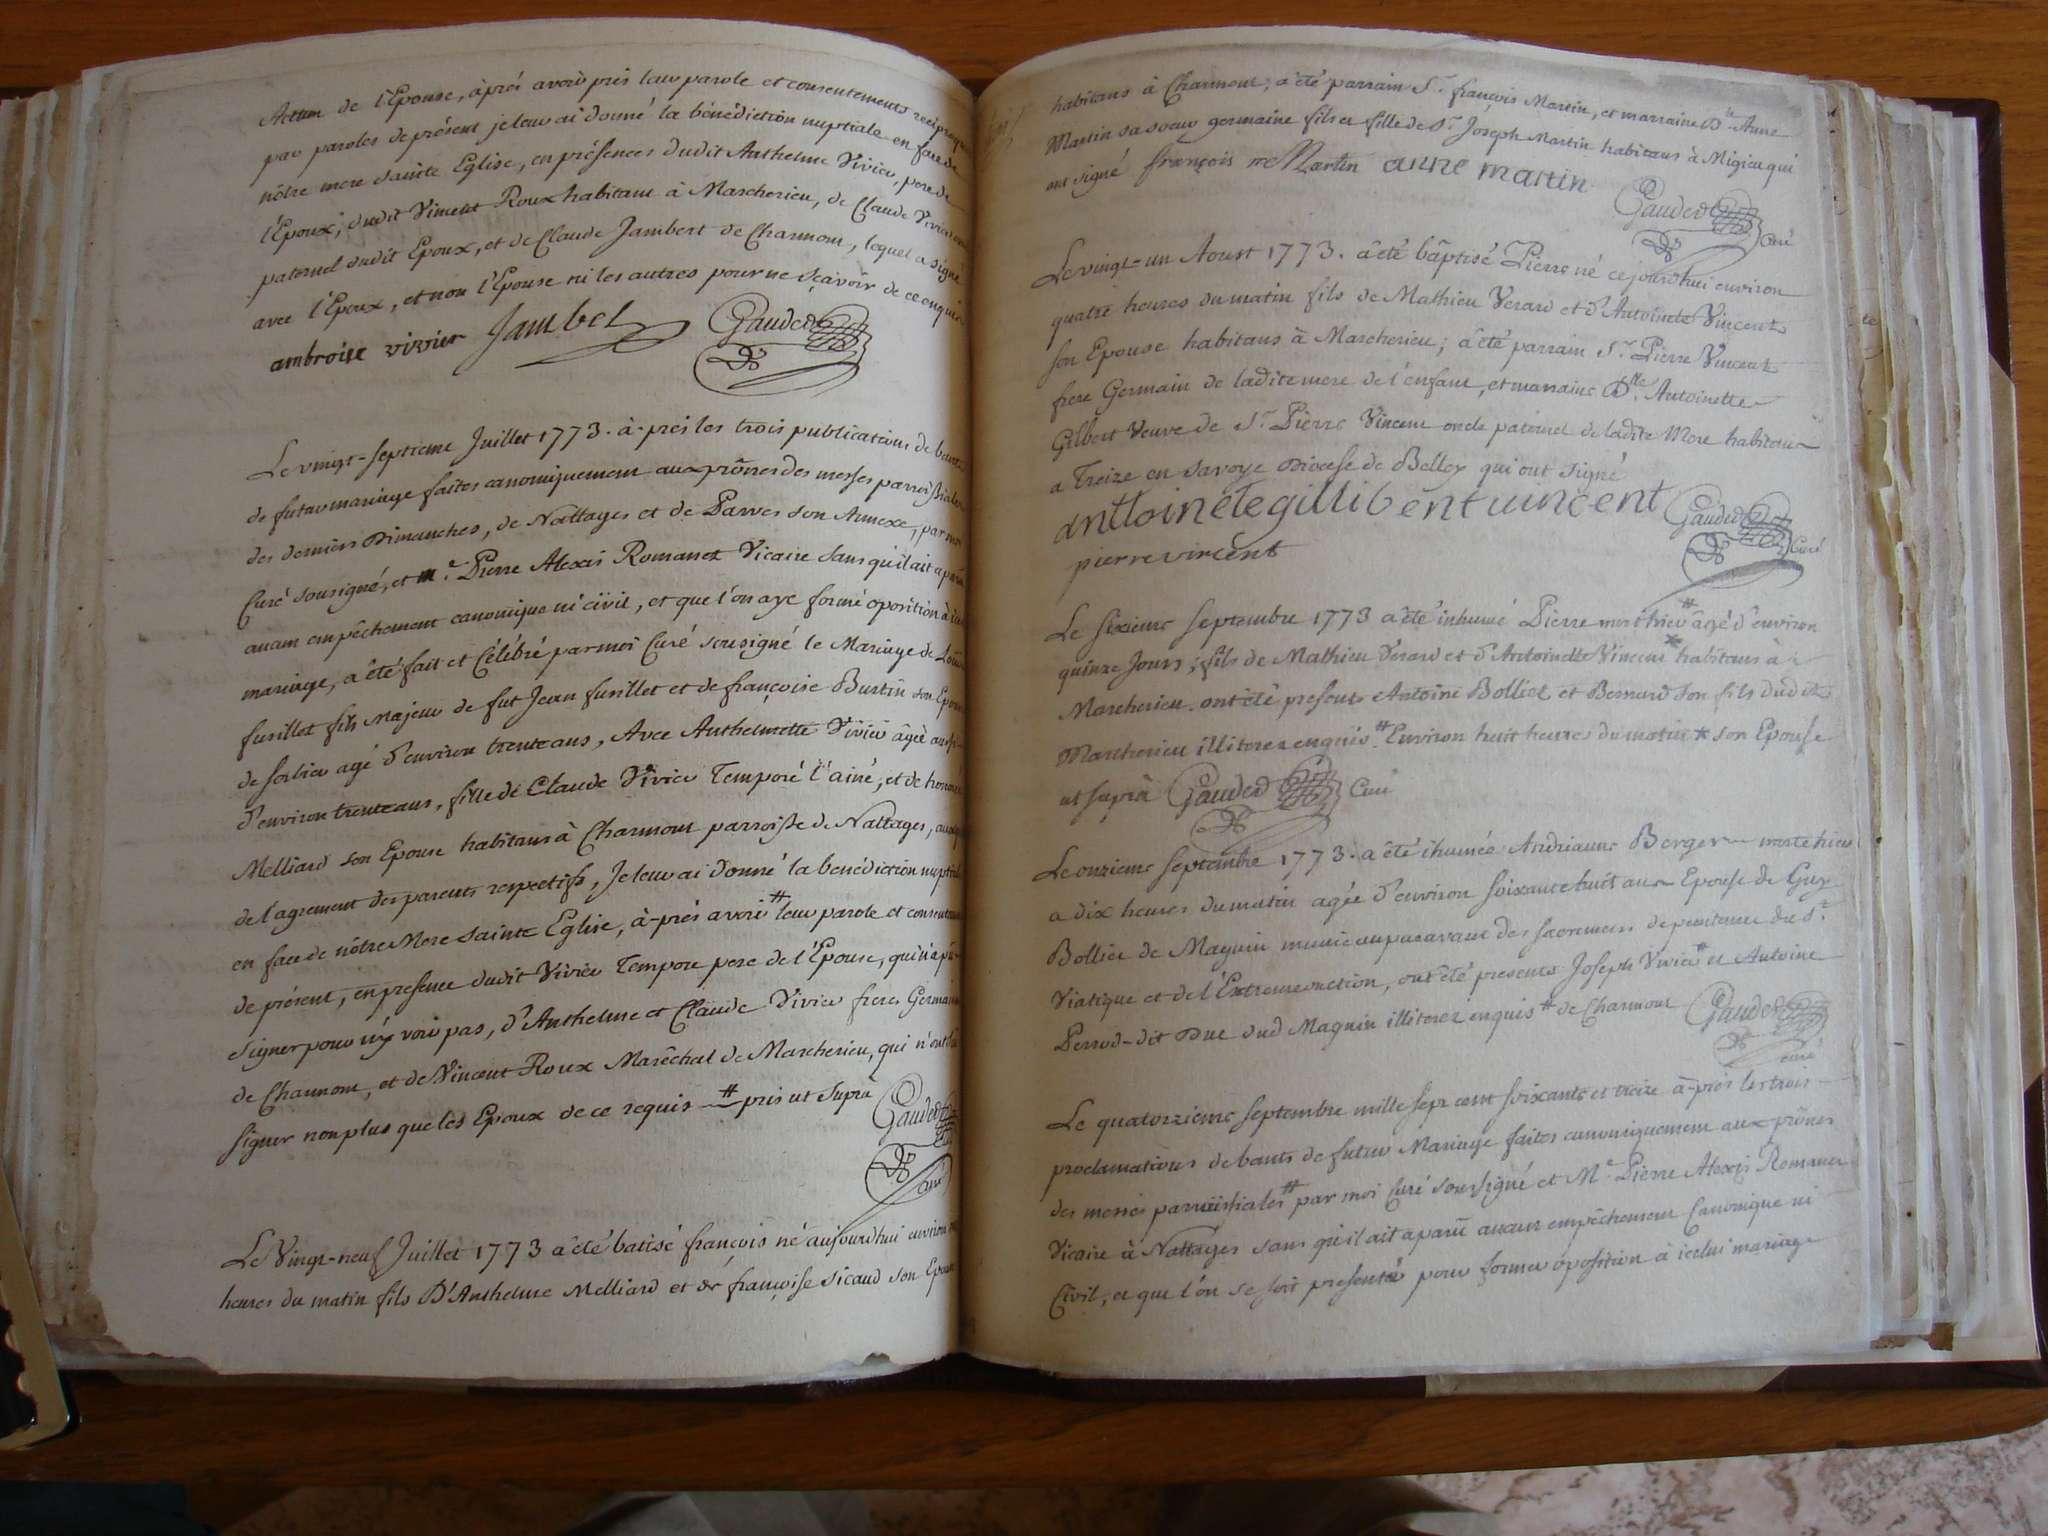 Actum de l'Epouse, àprés avoir pris leur parole et consentements reciproque
par paroles de présent je leur ai donné la bénédiction nuptiale en face de
nôtre mere sainte Eglise, en présences dudit Anthelme Vivier, pere de
l'Epoux, dudit Vincent Roux habitant à Marcherieu, de Claude Vivier
paternel dudit Epoux, et de Claude Jambert de Charmont, lequel a signé
avec l'Epoux, et non l'Epouse ni les autres pour ne sçavoir de ce enquis
ambroise vivier Jambet Gauded
Le vingt-septieme Juillet 1773. à-prés les trois publications de bants
de futur mariage faites canoniquement aux prônes des messes parroissiales
des derniers Dimanches, de Nattages et de Parves son Annexe, par moi
Curé sousigné, et Me. Pierre Alexis Romanet Vicaire sans qu'il ait aparu
aucun empêchement canonique ni civil, et que l'on aye formé oposition à
mariage, a êté fait et Célébré par moi Curé sousigné le Mariage de Loüis
fusillet fils majeur de fut Jean fusillet et de françoise Burtin son Epouse
de sorbier agé d'environ trente ans, Avec Anthelmette Vivier âgée aussi
d'environ trente ans, fille de Claude Vivier Temporé l'ainé, et de
Melliard son Epouse habitans à Charmont parroisse de Nattages,
de l'agrement des parents respectifs, Je leur ai donné la benédiction nuptiale
en face de nôtre Mere sainte Eglise, à-prés avoir # leur parole et consentement
de présent, en presence dudit Vivier Tempore pere de l'Epouse, qui n'a pû
signer pour n'y voir pas, d'Anthelme et Claude Vivier freres Germains
de Charmont, et de Vincent Roux Marêchal de Marcherieu, qui n'ont sû
signer non plus que les Epoux de ce requis # pris ut suprà
Gauded
curé
Le Vingt-neuf Juillet 1773 a êté batisé françois né aujourd'hui environ
heures du matin fils D'Anthelme Melliard et de françoise sicaud son Epouse
habitans à Charmont, a êté parrain Sr. françois Martin, et marraine Dlle. Anne
Martin sa soeur germaine fils et fille de Sr. Joseph Martin habitans à Migieu qui
ont signé françois Martin anne martin
Gauded
Curé
Le vingt-un Aoust 1773. a êté bâptisé Pierre né cejourd'hui environ
quatre heures du matin fils de Mathieu Verard et d'Antoinette Vincent
son Epouse habitans à Marcherieu; a êté parrain Sr. Pierre Vincent
frere Germain de ladite mere de l'enfant, et marraine Dlle. Antoinette
Gilbert Veuve de Sr. Pierre Vincent oncle paternel de ladite Mere habitans
a Treize en Savoye Diocese de Belley qui ont signé
anttoinete gillibent vincent Gauded
pierre vincent Curé
Le sixieme septembre 1773 a êté inhumé Pierre mort hier # âgé d'environ
quinze Jours, fils de Mathieu Verard et d'Antoinette Vincent * habitans à
Marcherieu. ont êté presents Antoine Bolliet et Bernard son fils dudit
Marcherieu illiterez enquis. # Environ huit heures du matin * son Epouse
ut suprà Gauded Curé
Le onzieme septembre 1773. a êté ihumée Andrianne Berger morte hier
a dix heures du matin agée d'environ soixante huit ans Epouse de Guy
Bollier de Magnin munie auparavant des sacremens de penitence du St.
Viatique et de l'Extremeonction, ont êté presents Joseph Vivier # et Antoine
Perrod-dit Duc dud Magnin illiterez enquis # de Charmont Gauded
curé
Le quatorzieme septembre mille sept cent soixante et treize à-prés les trois
proclamations de bants de futur Mariage faites canoniquement aux prônes
des messes parroissiales # par moi Curé sousigné et Me. Pierre Alexis Romanet
Vicaire à Nattages sans qu'il ait aparû aucun empêchement Canonique ni
Civil, et que l'on se soit presenté pour former oposition à icelui mariage